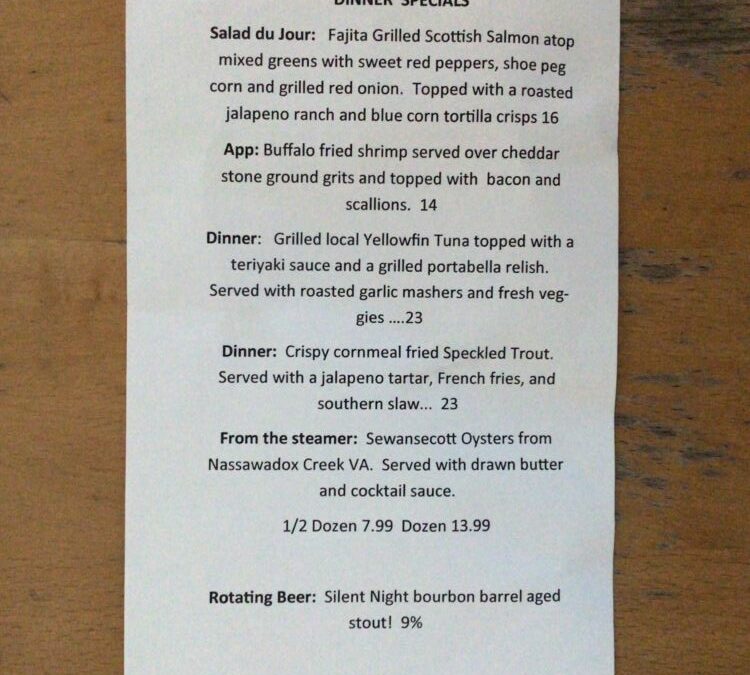 DINNER SPECIALS
Salad du Jour: Fajita Grilled Scottish Salmon atop
mixed greens with sweet red peppers, shoe peg
corn and grilled red onion. Topped with a roasted
jalapeno ranch and blue corn tortilla crisps 16
App: Buffalo fried shrimp served over cheddar
stone ground grits and topped with bacon and
scallions. 14
Dinner: Grilled local Yellowfin Tuna topped with a
teriyaki sauce and a grilled portabella relish.
Served with roasted garlic mashers and fresh veg-
gies ....23
Dinner: Crispy cornmeal fried Speckled Trout.
Served with a jalapeno tartar, French fries, and
southern slaw... 23
From the steamer: Sewansecott Oysters from
Nassawadox Creek VA. Served with drawn butter
and cocktail sauce.
1/2 Dozen 7.99 Dozen 13.99
Rotating Beer: Silent Night bourbon barrel aged
stout! 9%